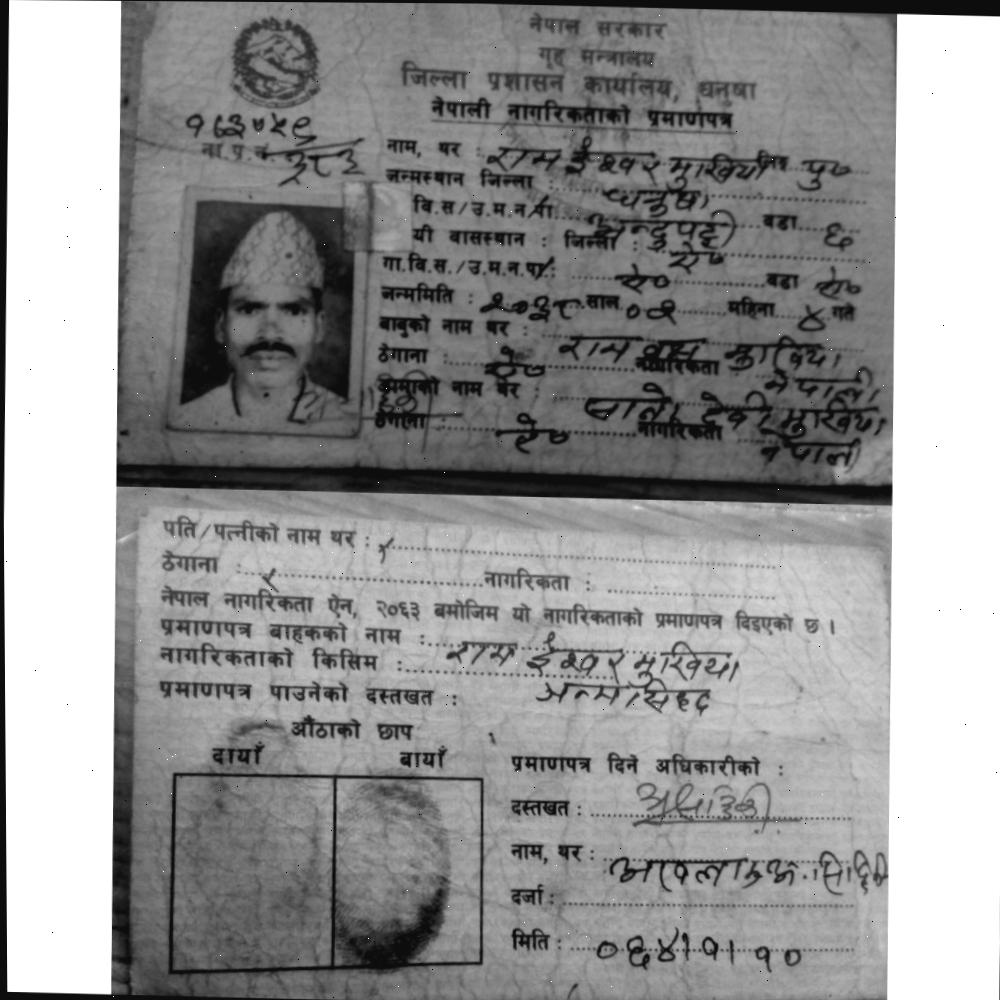 नेपाल सरकार
गृह मन्त्रालय
जिल्ला प्रशासन कार्यालय, धनुषा
नेपाली नागरिकताको प्रमाणपत्र
ना.प्र.नं.
३८३
नाम, थर : राम ईश्वर मुखिया लिङ्ग पु०
जन्मस्थान जिल्ला : धनुषा
बि.स/उ.म.न/पा: वडा ६
यी बासस्थान : जिल्ला : ऐ०
गा.वि.स./उ.म.न.पा: ऐ० वडा ऐ०
जन्ममिति : २०३८ साल ०२ महिना ४ गते
बाबुको नाम थर : राम मुखिया
ठेगाना : ऐ० नागरिकता नेपाली
आमाको नाम थर : देवी मुखिया
ठेगाना : ऐ० नागरिकता नेपाली
पति/पत्नीको नाम थर : ×
ठेगाना : × नागरिकता :
नेपाल नागरिकता ऐन, २०६३ बमोजिम यो नागरिकताको प्रमाणपत्र दिइएको छ।
प्रमाणपत्र बाहकको नाम : राम ईश्वर मुखिया
नागरिकताको किसिम : जन्मसिद्ध
प्रमाणपत्र पाउनेको दस्तखत :
औंठाको छाप
दायाँ बायाँ
प्रमाणपत्र दिने अधिकारीको :
दस्तखत :
नाम, थर :
दर्जा :
मिति : ०६४।१।१०